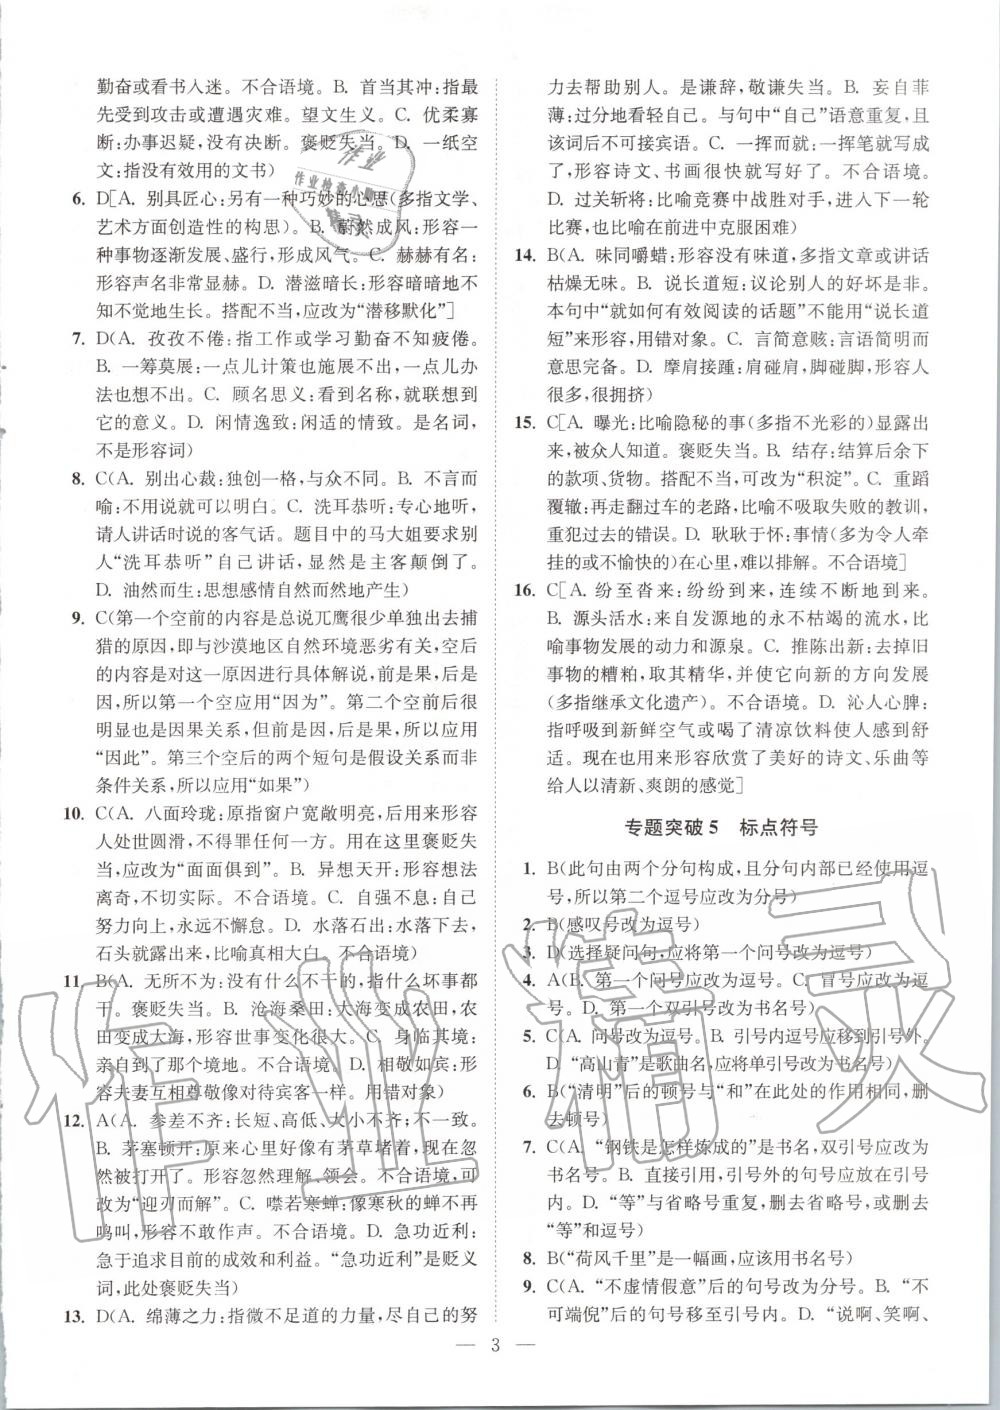 勤奋或看书入迷。不合语境。B. 首当其冲:指最
先受到攻击或遭遇灾难。望文生义。C. 优柔寡
断:办事迟疑,没有决断。褒贬失当。D. 一纸空
文:指没有效用的文书)
6. D[A. 别具匠心:另有一种巧妙的心思(多指文学、
艺术方面创造性的构思)。B. 蔚然成风:形容一
种事物逐渐发展、盛行,形成风气。C. 赫赫有名:
形容声名非常显赫。D. 潜滋暗长:形容暗暗地不
知不觉地生长。搭配不当,应改为“潜移默化”]
7. D(A. 孜孜不倦:指工作或学习勤奋不知疲倦。
B. 一筹莫展:一点儿计策也施展不出,一点儿办
法也想不出。C. 顾名思义:看到名称,就联想到
它的意义。D. 闲情逸致:闲适的情致。是名词,
不是形容词)
8. C(A. 别出心裁:独创一格,与众不同。B. 不言而
喻:不用说就可以明白。C. 洗耳恭听:专心地听,
请人讲话时说的客气话。题目中的马大姐要求别
人“洗耳恭听”自己讲话,显然是主客颠倒了。
D. 油然而生:思想感情自然而然地产生)
9. C(第一个空前的内容是总说兀鹰很少单独出去捕
猎的原因,即与沙漠地区自然环境恶劣有关,空后
的内容是对这一原因进行具体解说,前是果,后是
因,所以第一个空应用“因为”。第二个空前后很
明显也是因果关系,但前是因,后是果,所以应用
“因此”。第三个空后的两个短句是假设关系而非
条件关系,所以应用“如果”)
10. C(A. 八面玲珑:原指窗户宽敞明亮,后用来形容
人处世圆滑,不得罪任何一方。在这里褒贬失
当,应改为“面面俱到”。B. 异想天开:形容想法
离奇,不切实际。不合语境。C. 自强不息:自己
努力向上,永远不懈怠。D. 水落石出:水落下去,
石头就露出来,比喻真相大白。不合语境)
11. B(A. 无所不为:没有什么不干的,指什么坏事都
干。褒贬失当。B. 沧海桑田:大海变成农田,农
田变成大海,形容世事变化很大。C. 身临其境:
亲自到了那个境地。不合语境。D. 相敬如宾:形
容夫妻互相尊敬像对待宾客一样。用错对象)
12. A(A. 参差不齐:长短、高低、大小不齐;不一致。
B. 茅塞顿开:原来心里好像有茅草堵着,现在忽
然被打开了。形容忽然理解、领会。不合语境,可
改为“迎刃而解”。C. 噤若寒蝉:像寒秋的蝉不再
鸣叫,形容不敢作声。不合语境。D. 急功近利:
急于追求目前的成效和利益。“急功近利”是贬义
词,此处褒贬失当)
13. D(A. 绵薄之力:指微不足道的力量,尽自己的努
力去帮助别人。是谦辞,敬谦失当。B. 妄自菲
薄:过分地看轻自己。与句中“自己”语意重复,且
该词后不可接宾语。C. 一挥而就:一挥笔就写成
了,形容诗文、书画很快就写好了。不合语境。
D. 过关斩将:比喻竞赛中战胜对手,进入下一轮
比赛,也比喻在前进中克服困难)
14. B(A. 味同嚼蜡:形容没有味道,多指文章或讲话
枯燥无味。B. 说长道短:议论别人的好坏是非。
本句中“就如何有效阅读的话题”不能用“说长道
短”来形容,用错对象。C. 言简意赅:言语简明而
意思完备。D. 摩肩接踵:肩碰肩,脚碰脚,形容人
很多,很拥挤)
15. C[A. 曝光:比喻隐秘的事(多指不光彩的)显露出
来,被众人知道。褒贬失当。B. 结存:结算后余下
的款项、货物。搭配不当,可改为“积淀”。C. 重蹈
覆辙:再走翻过车的老路,比喻不吸取失败的教训,
重犯过去的错误。D. 耿耿于怀:事情(多为令人牵
挂的或不愉快的)在心里,难以排解。不合语境]
16. C[A. 纷至沓来:纷纷到来,连续不断地到来。
B. 源头活水:来自发源地的永不枯竭的流水,比
喻事物发展的动力和源泉。C. 推陈出新:去掉旧
事物的糟粕,取其精华,并使它向新的方向发展
(多指继承文化遗产)。不合语境。D. 沁人心脾:
指呼吸到新鲜空气或喝了清凉饮料使人感到舒
适。现在也用来形容欣赏了美好的诗文、乐曲等
给人以清新、爽朗的感觉]
专题突破5 标点符号
1. B(此句由两个分句构成,且分句内部已经使用逗
号,所以第二个逗号应改为分号)
2. B(感叹号改为逗号)
3. D(选择疑问句,应将第一个问号改为逗号)
4. A(B. 第一个问号应改为逗号。C. 冒号应改为逗
号。D. 第一个双引号改为书名号)
5. C(A. 问号改为逗号。B. 引号内逗号应移到引号外。
D. “高山青”是歌曲名,应将单引号改为书名号)
6. B(“清明”后的顿号与“和”在此处的作用相同,删
去顿号)
7. C(A. “钢铁是怎样炼成的”是书名,双引号应改为
书名号。B. 直接引用,引号外的句号应放在引号
内。D. “等”与省略号重复,删去省略号,或删去
“等”和逗号)
8. B(“荷风千里”是一幅画,应该用书名号)
9. C(A. “不虚情假意”后的句号改为分号。B. “不
可端倪”后的句号移至引号内。D. “说啊、笑啊、
3
作业
作业检查小助手
精灵
作业精灵